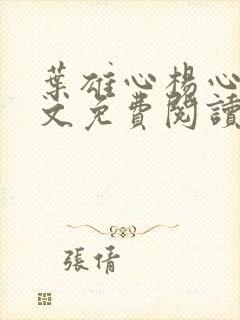 葉雄心楊心
文免費閱讀
張倩